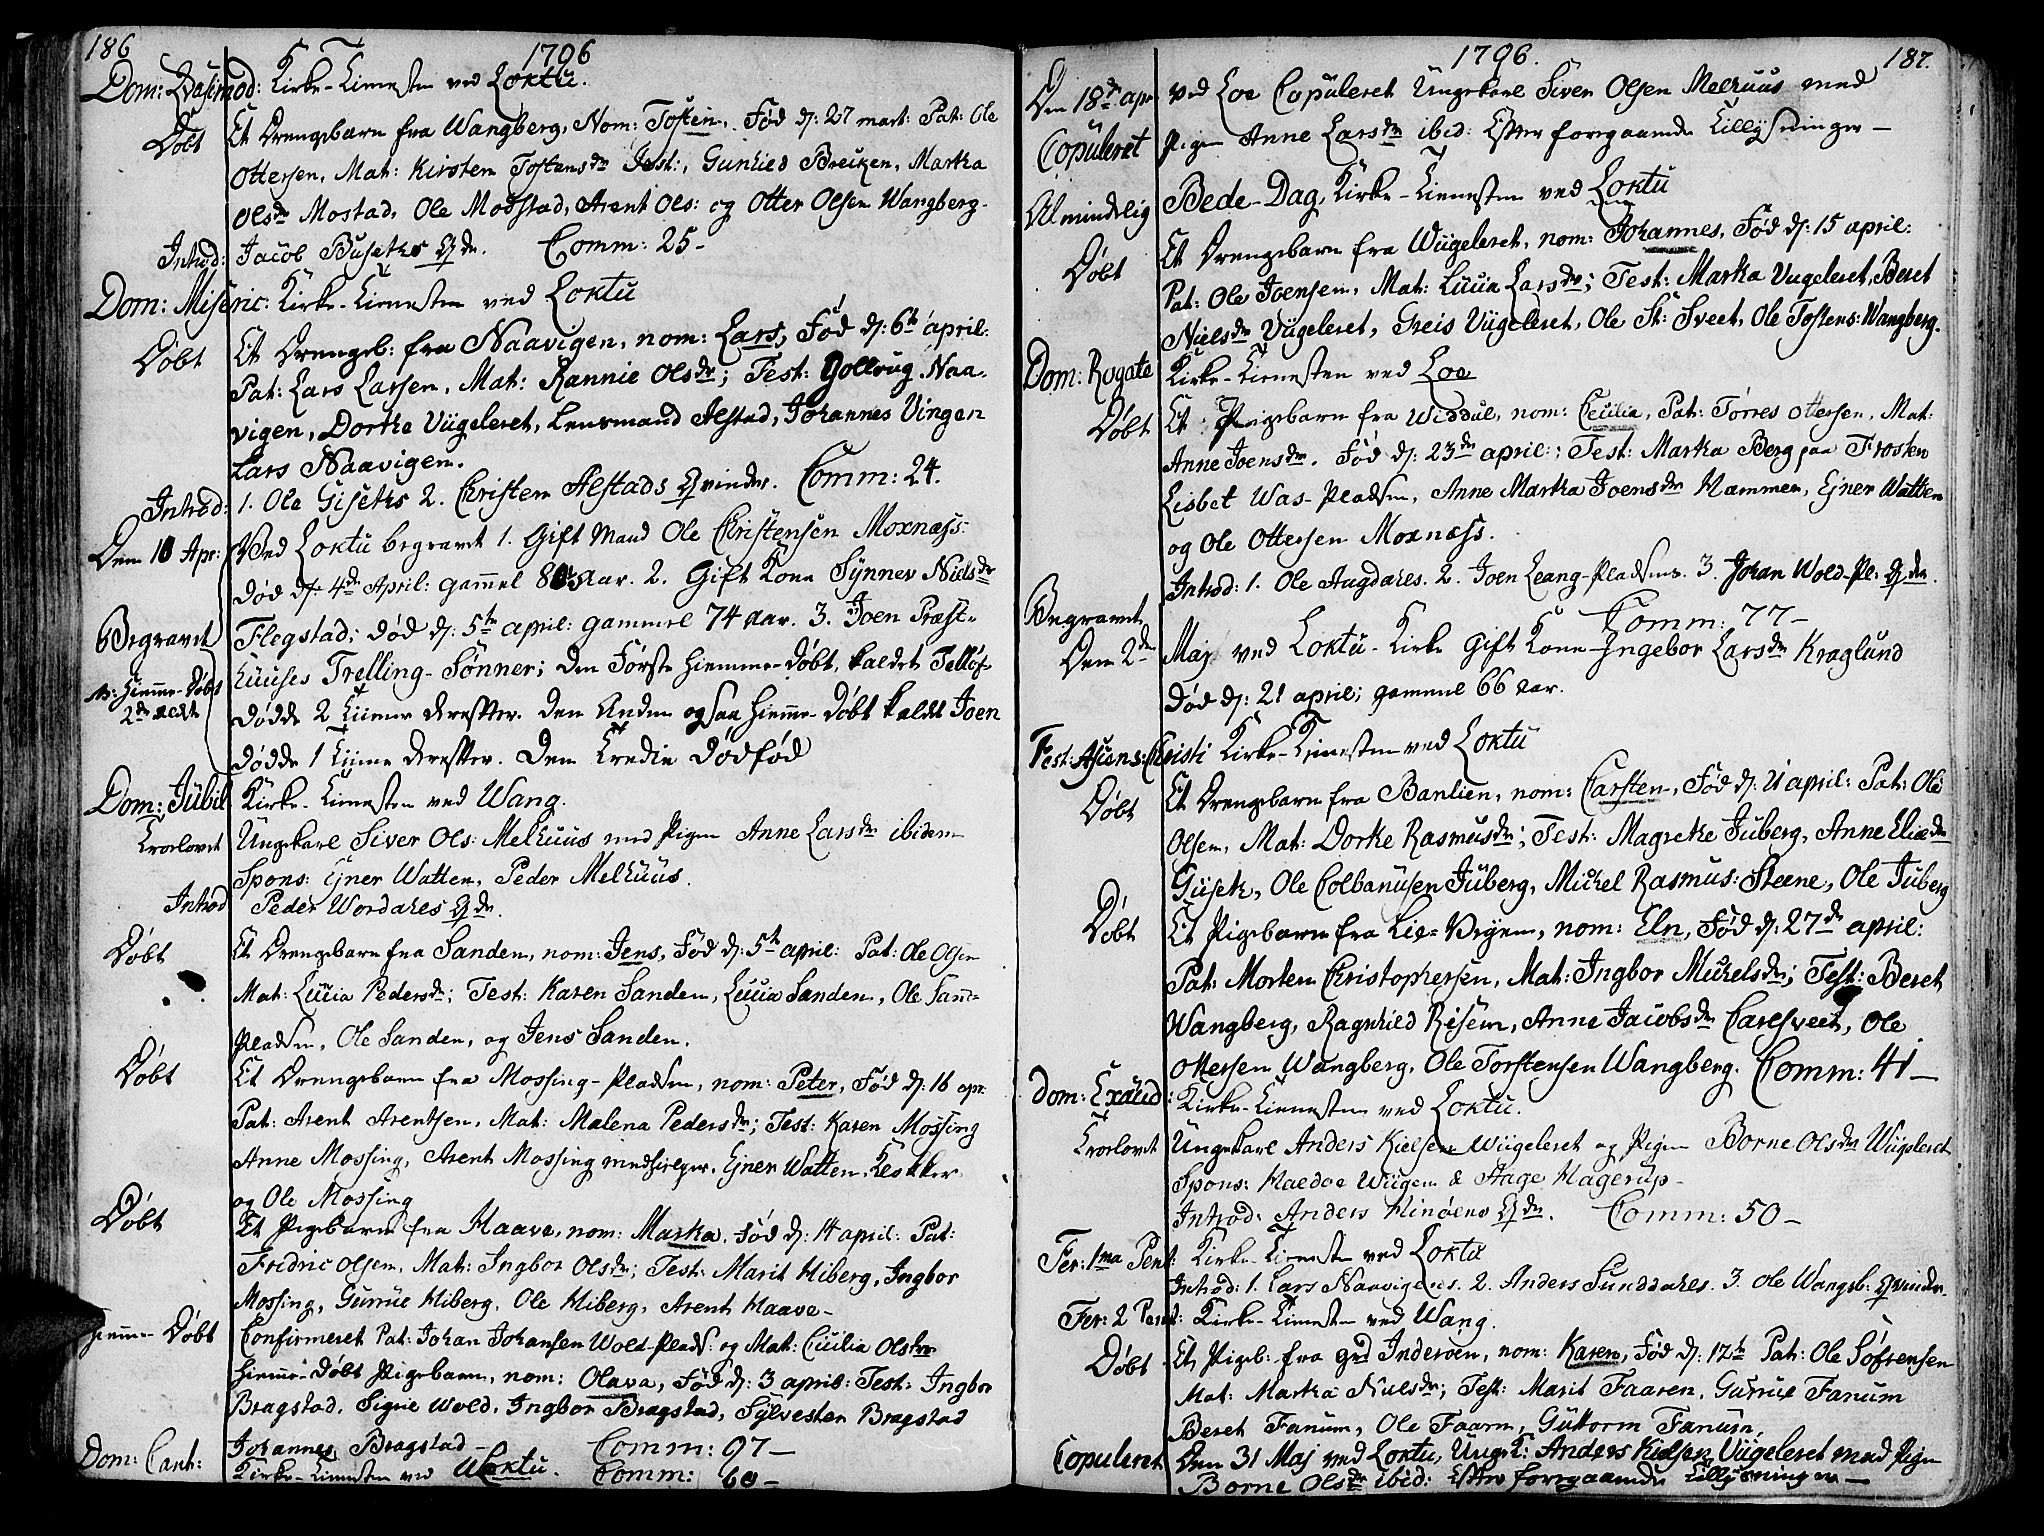 186
1796
Dom: Qvasimod: Kirke-Tienesten ved Loktu.
Døbt Et Drengebarn fra Wangberg, Nom: Tosten, Fød d: 27 mart: Pat: Ole
Ottersen, Mat: Kirsten Tostensdr Test: Gunhild Breiken, Marta
Olsdr Mostad, Ole Mostad, Arent Ols: og Otter Olsen Wangberg.
Introd: Jacob Buseths Qde. Comm: 25-
Dom: Miseric: Kirke-Tienesten ved Loktu
Døbt Et Drengeb: fra Naavigen, nom: Lars, Fød d: 6te april:
Pat: Lars Larsen, Mat: Rannie Olsdr; Test: Gollaug Naa-
vigen, Dorthe Viigeleret, Lensmand Alstad, Johannes Vingen
Lars Naavigen.
Introd: 1. Ole Giseths 2. Christen Alstads Qvinder. Comm: 24.
Den 10 Apr: Ved Loktu begravet 1. Gift Mand Ole Christensen Moxnæss
død d: 4de April: gammel 80 Aar. 2. Gift Kone Synnev Nielsdr
Begravet Flegstad; død d: 5te april: gammel 74 Aar. 3. Joen Præst-
N: Hiemme-Døbt huuses Trelling-Sønner; den Første hiemme-døbt, kaldet Tellef
2de ældt dødde 2 Tiimer derefter. den Anden ogsaa hiemme-døbt kaldt Joen
dødde 1 Tiime derefter. den Tredie Dødfød
Dom: Jubil Kirke-Tienesten ved Wang.
Trolovet Ungekarl Siver Ols: Melhuus med Pigen Anne Larsdr ibidem
Spons: Ejner Watten, Peder Melhuus.
Introd Peder Wordahls Qde.
Døbt Et Drengebarn fra Sanden, nom: Jens, Fød d: 5te april: Pat: Ole Olsen
Mat: Lucia Pedersdr; Test: Karen Sanden, Lucia Sanden, Ole Sand-
Pladsen, Ole Sanden, og Jens Sanden.
Døbt Et Drengebarn fra Mossing-Pladsen, nom: Peter, Fød d: 16 apr:
Pat: Arent Arentsen, Mat: Malena Pedersdr; Test: Karen Mossing
Anne Mossing, Arent Mossing Medhielper, Ejner Watten Klokker
og Ole Mossing
Døbt Et Pigebarn fra Haave, nom: Marta, Fød d: 14 april: Pat:
Fridric Olsen, Mat: Ingbor Olsdr; Test: Marit Hiberg, Ingbor
Mossing, Gurrue Hiberg, Ole Hiberg, Arent Haave-
Hiemme-Døbt Confirmeret Pat: Johan Johansen Wold-Plads: og Mat: Cicilia Olsdr
hiemme-døbt Pigebarn, nom: Olava, Fød d: 3 april: Test: Ingbor
Bragstad, Sigrie Wold, Ingbor Bragstad, Sylvester Bragstad
Johannes Bragstad- Comm: 97-
Dom: Cant: Kirke-Tienesten ved Loktu. Comm: 60-
1796.
187.
Den 18de apr ved Loe Copuleret Ungekarl Siver Olsen Melhuus med
Copuleret Pigen Anne Larsdr ibid: Efter foregaaende Tillysninger-
Almindelig Bede-Dag, Kirke-Tienesten ved Loktu
Døbt Et Drengebarn fra Wiigeleret, nom: Johannes, Fød d: 15 april:
Pat: Ole Joensen, Mat: Lucia Larsdr; Test: Marta Viigeleret, Beret
Nielsdr Viigeleret, Greis Viigeleret, Ole St: Sveet, Ole Tostens: Wangberg.
Dom: Rogate Kirke-Tienesten ved Loe
Døbt Et Pigebarn fra Widdul, nom: Cecilia, Pat: Torres Ottersen, Mat:
Anne Joensdr. Fød d: 23de april: Test: Marta Berg paa Frosten
Lisbet Was-Pladsen, Anne Marta Joensdr Hammer, Ejner Watten
og Ole Ottersen Moxnæss.
Introd: 1. Ole Augdahls. 2. Joen Leang-Pladsens. 3. Johan Wold-Pl: Qde.
Comm: 77-
Begravet
Den 2de Maj ved Loktu-Kirke Gift Kone Ingebor Larsdr Kraglund
død d: 21 april; gammel 66 Aar.
Fest: Ascens: Christi Kirke-Tienesten ved Loktu
Døbt Et Drengebarn fra Banlien, nom: Carsten, Fød d: 21 april: Pat: Ole
Olsen, Mat: Dorthe Rasmusdr; Test: Magrethe Juberg, Anne Eliædr
Giiseth, Ole Colbanusen Juberg, Michel Rasmus: Steene, Ole Juberg
Døbt Et Pigebarn fra Lie-Vejen, nom: Eln, Fød d: 27de april:
Pat: Morten Christophersen, Mat: Ingbor Michelsdr; Test: Beret
Wangberg, Ragnhild Risem, Anne Jacobsdr Carlsveet, Ole
Ottersen Wangberg, Ole Torstensen Wangberg. Comm: 41-
Dom: Exaud: Kirke-Tienesten ved Loktu.
Trolovet Ungekarl Anders Kielsen Wiigeleret og Pigen Borne Olsdr Wiigleret
Spons: Haedoe Wiigen & Aage Hagerup-
Introd: Anders Hinøens Qde. Comm: 50-
Fer: 1ma Pent: Kirke-Tienesten ved Loktu
Introd: 1. Lars Naavigens. 2. Anders Sunddahls. 3. Ole Wangsb: Qvinder.
Fer: 2 Pent: Kirke-Tienesten ved Wang.
Døbt Et Pigeb: fra Inderøen, nom: Karen, Fød d: 17te Pat: Ole Sofrensen
Mat: Marta Nielsdr; Test: Marit Faaren, Gurrue Fanum
Beret Fanum, Ole Faarn, Guttorm Fanum,
Copuleret Den 31 Maj ved Loktu, Ungk: Anders Kielsen Viigeleret med Pigen
Borne Olsdr ibid: Efter foregaaende Tillysninger-